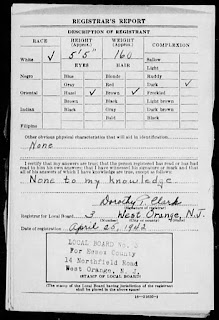 REGISTRAR'S REPORT
DESCRIPTION OF REGISTRANT
RACE HEIGHT (Approx.) WEIGHT (Approx.) COMPLEXION
White ✓ 5'5" 160 Sallow
EYES HAIR Light
Negro Blue Blonde Ruddy
Gray Red Dark ✓
Oriental Hazel ✓ Brown ✓ Freckled
Brown Black Light brown
Indian Black Gray Dark brown
Bald Black
Filipino
Other obvious physical characteristics that will aid in identification
None
I certify that my answers are true; that the person registered has read or has had read to him his own answers; that I have witnessed his signature or mark and that all of his answers of which I have knowledge are true, except as follows:
None to my knowledge
Dorothy T. Clark
Registrar for Local Board 3 West Orange, N.J.
Date of registration April 25, 1942
LOCAL BOARD No. 
For Essex County
14 Northfield Road
West Orange, N. J.
(STAMP OF LOCAL BOARD)
(The stamp of the Local Board having jurisdiction of the registrant shall be placed in the above space)